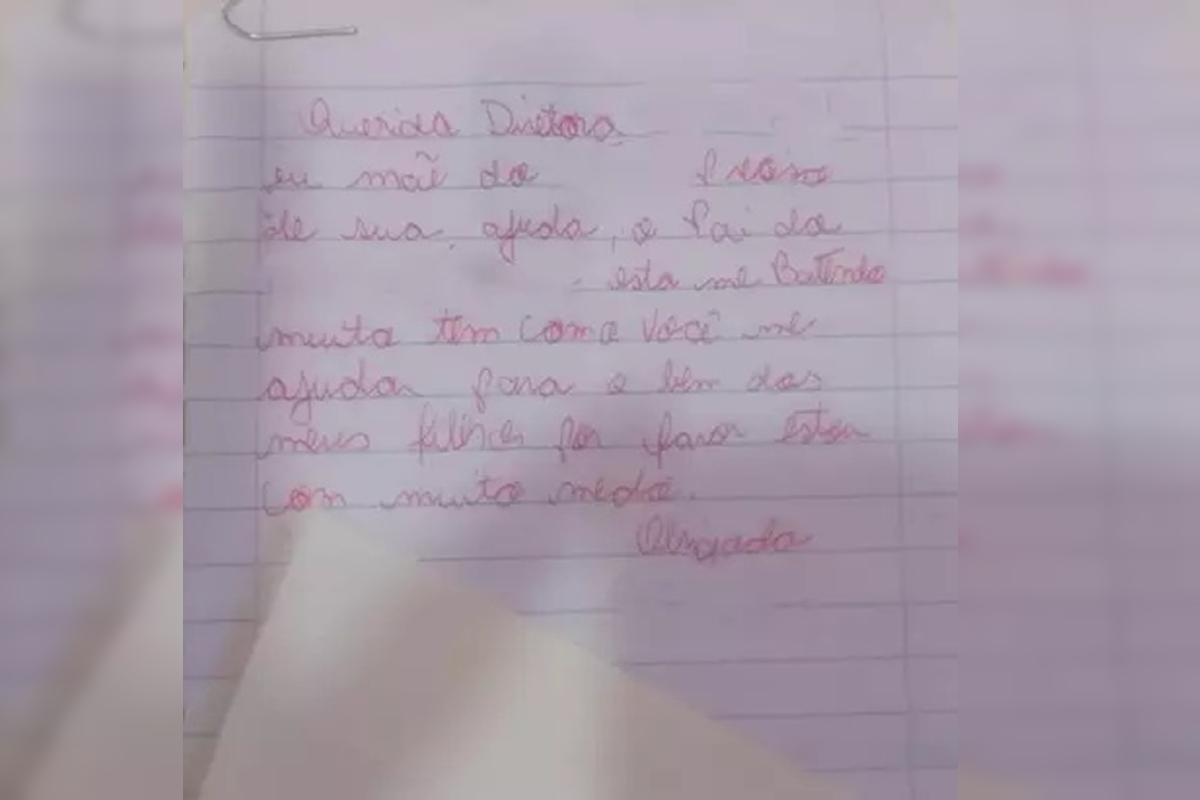 Querida Diretora
eu mãe da preciso
de sua, ajuda, o Pai da
esta me Batendo
muito tem como você me
ajudar para o bem dos
meus filhos por favor estou
com muito medo.
Obrigada